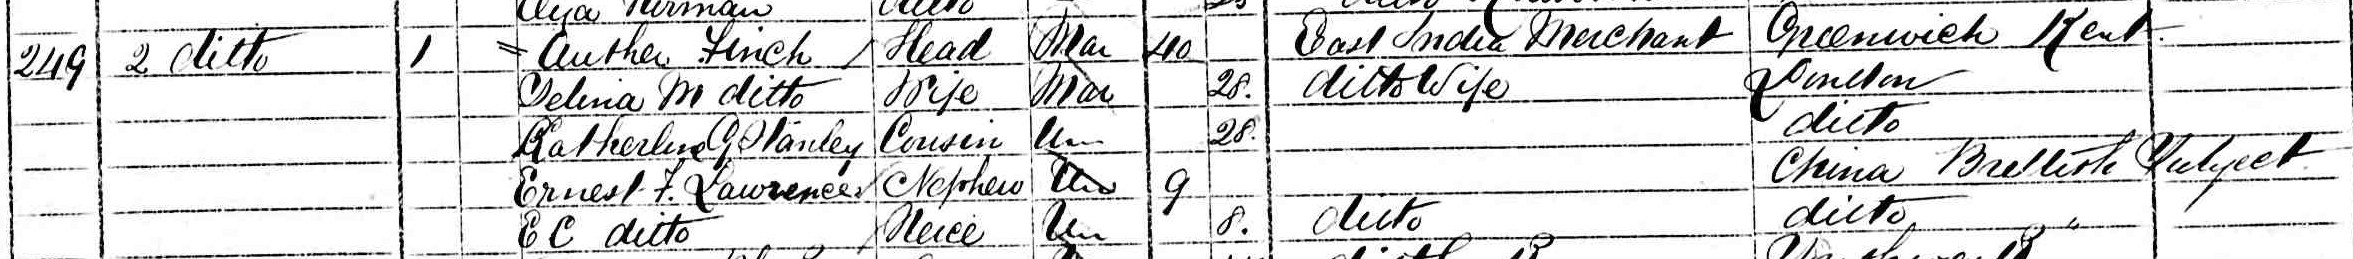 ditto 25 ditto
249 2 ditto 1 Auther Finch Head Mar 40 East India Merchant Greenwich Kent
Selina M ditto Wife Mar 28 ditto Wife London
Katherine G Stanley Cousin Un 28 ditto
Ernest F. Lawrence Nephew Un 9 China Brettish Subject
E C ditto Neice Un 8 ditto ditto "